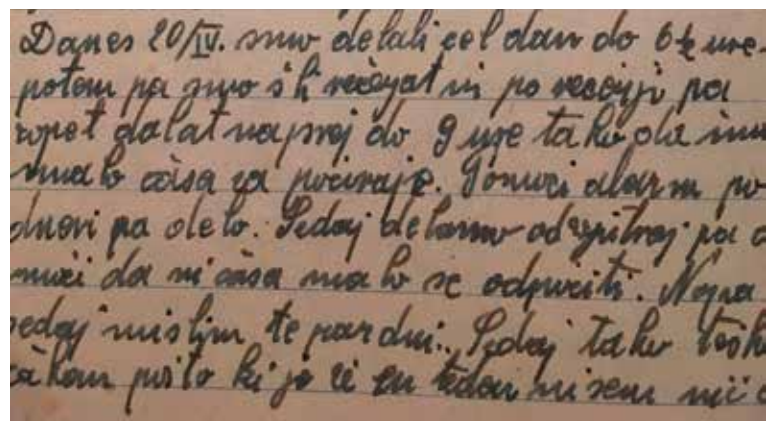 Danes 20/IV. smo delali cel dan do 6½ ure.
potem pa smo šli večerjat in po večerji pa
zopet dalat naprej do 9 ure tako da ima
malo časa za počivaje. Ponoči alarm po
dnevi pa delo. Sedaj delamo od zjutraj pa
noči da ni časa malo se odpočiti. Nepra
sedaj mislim te par dni. Sedaj tako tešk
čakam pošto ki je že en tedan nisem nič